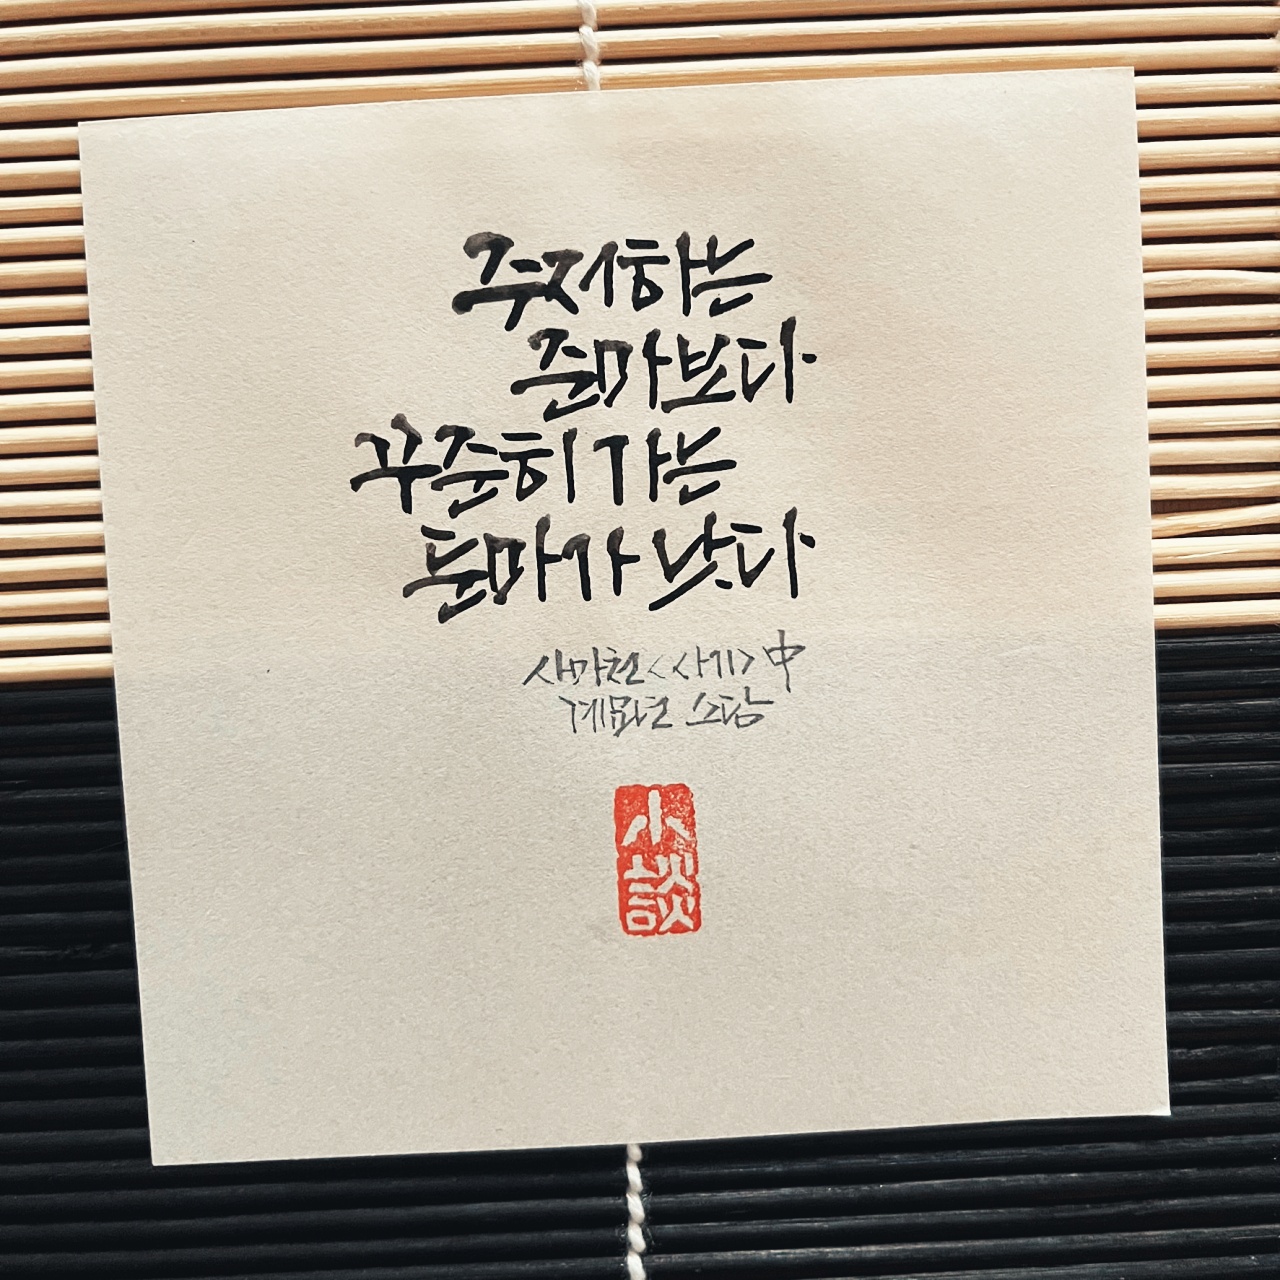 주저하는
준마보다
꾸준히 가는
둔마가 낫다
사마천<사기>中
계묘년 소담
小談